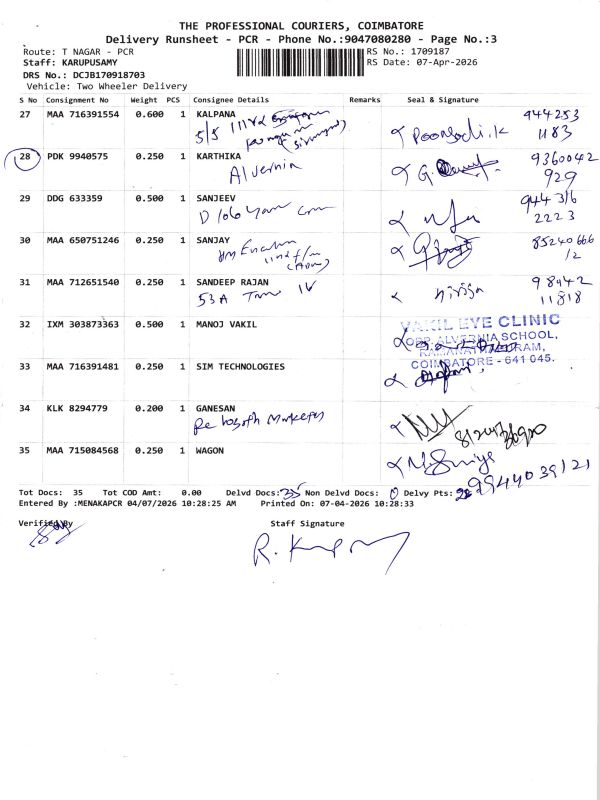 THE PROFESSIONAL COURIERS, COIMBATORE
Delivery Runsheet - PCR - Phone No.:9047080280 - Page No.:3
Route: T NAGAR - PCR
RS No.: 1709187
Staff: KARUPUSAMY
RS Date: 07-Apr-2026
DRS No.: DCJB170918703
Vehicle: Two Wheeler Delivery
S No Consignment No Weight PCS Consignee Details Remarks Seal & Signature
27 MAA 716391554 0.600 1 KALPANA
5/5
944253
1183
28 PDK 9940575 0.250 1 KARTHIKA
Alvernia
9360042
929
29 DDG 633359 0.500 1 SANJEEV
D 106
944 316
2223
30 MAA 650751246 0.250 1 SANJAY
85240666
12
31 MAA 712651540 0.250 1 SANDEEP RAJAN
53 A
98942
11818
32 IXM 303873363 0.500 1 MANOJ VAKIL
VAKIL EYE CLINIC
OPP. ALVERNIA SCHOOL,
RAMANATHAPURAM,
COIMBATORE - 641 045.
33 MAA 716391481 0.250 1 SIM TECHNOLOGIES
34 KLK 8294779 0.200 1 GANESAN
35 MAA 715084568 0.250 1 WAGON
9944039121
Tot Docs: 35 Tot COD Amt: 0.00 Delvd Docs: 35 Non Delvd Docs: 0 Delvy Pts:
Entered By :MENAKAPCR 04/07/2026 10:28:25 AM Printed On: 07-04-2026 10:28:33
Verified By
Staff Signature